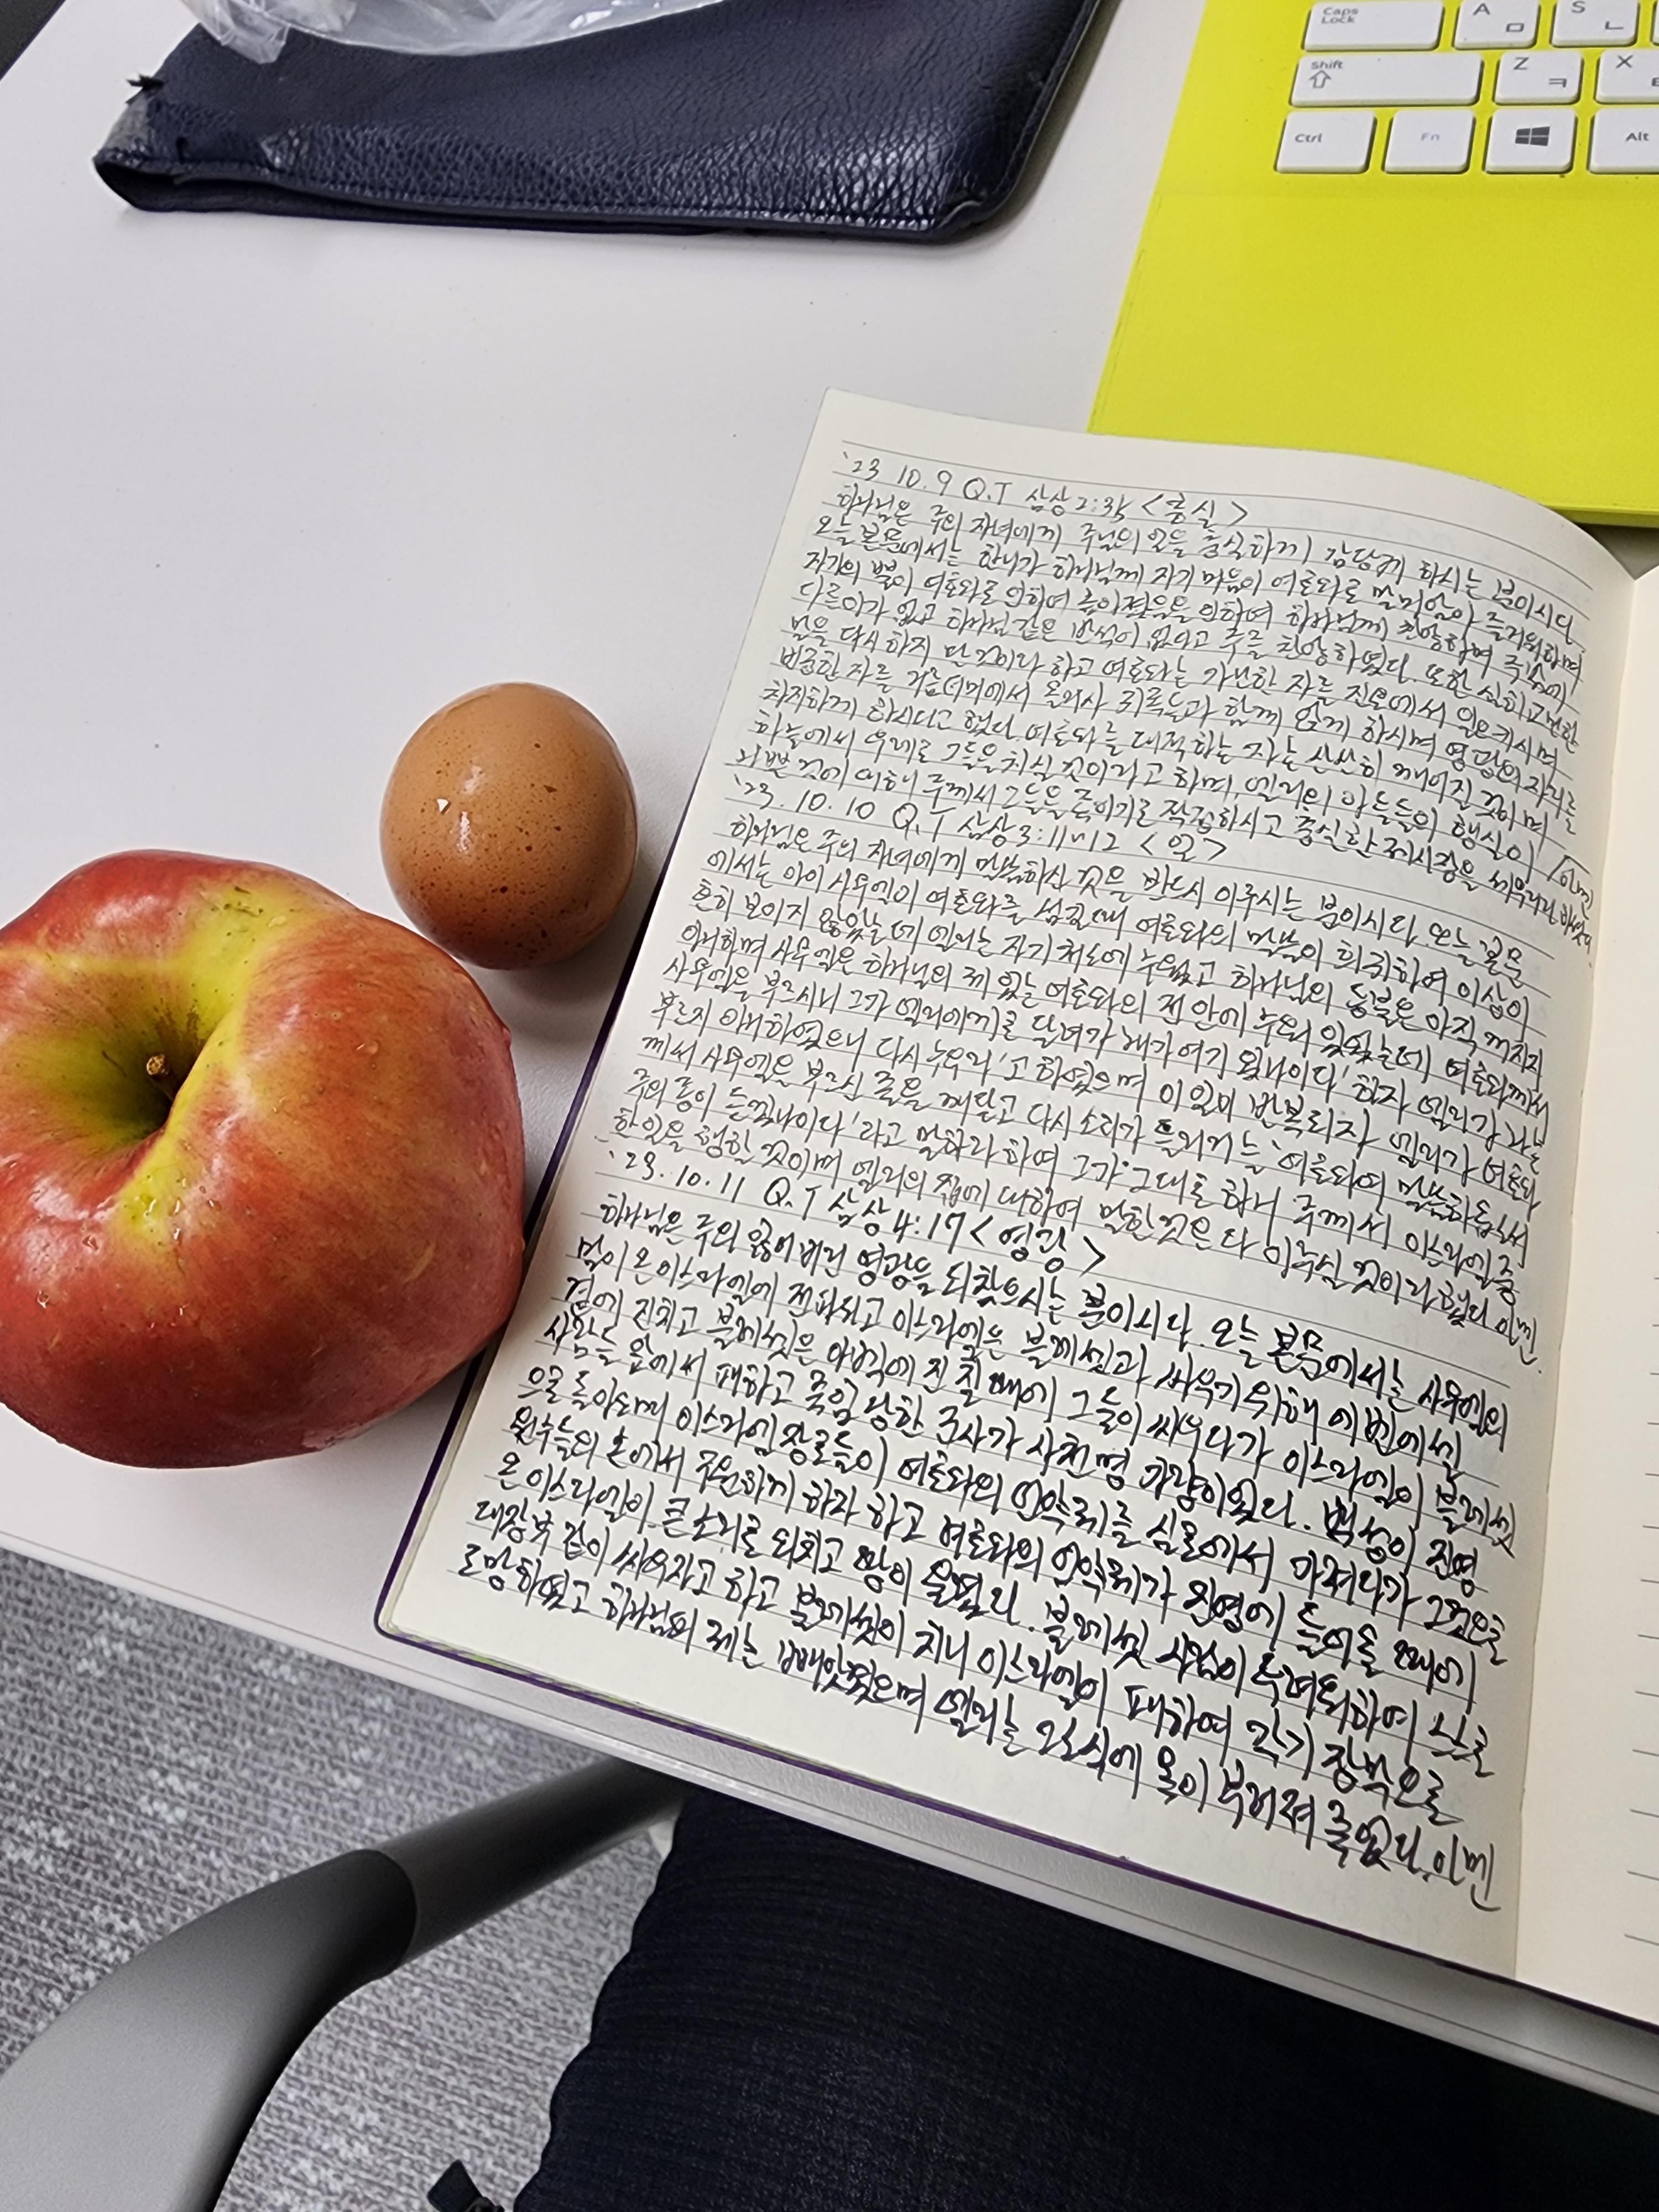 Caps Lock
A ㅁ
S ㄴ
Shift
Z ㅋ
X ㅌ
Ctrl
Fn
Alt
'23 10.9 Q.T 삼상2:35 <충실>
하나님은 주의 자녀에게 주님의 일을 충실하게 감당케 하시는 분이시다.
오늘 본문에서는 한나가 하나님께 자기 마음이 여호와로 말미암아 즐거워하며
자기의 뿔이 여호와로 인하여 높아졌음을 인하여 하나님께 찬양하며 주밖에
다른이가 없고 하나님 같은 반석이 없다고 주를 찬양하였다. 또한 심히 교만한
말을 다시 하지 말 것이라 하고 여호와는 가난한 자를 진토에서 일으키시며
빈궁한 자를 거름더미에서 올리사 귀족들과 함께 앉게 하시며 영광의 자리를
차지하게 하신다고 했다. 여호와를 대적하는 자는 산산히 깨어질 것이며
하늘에서 우레로 그들을 치실 것이라고 하며, 엘리의 아들들의 행실이
나쁜 것에 대해 주께서 그들을 죽이기로 작정하시고 충실한 제사장을 세우리라 하셨다. 아멘
'23. 10. 10 Q.T 삼상3:11~12 <일>
하나님은 주의 자녀에게 말씀하신 것은 반드시 이루시는 분이시다. 오늘 본문
에서는 아이 사무엘이 여호와를 섬길 때 여호와의 말씀이 희귀하여 이상이
흔히 보이지 않았는데 엘리는 자기 처소에 누웠고 하나님의 등불은 아직 꺼지지
아니하며 사무엘은 하나님의 궤 있는 여호와의 전 안에 누워 있었는데 여호와께서
사무엘을 부르시니 그가 엘리에게로 달려가 '내가 여기 있나이다' 하자 엘리가 나는
부르지 아니하였으니 다시 누우라'고 하였으며 이 일이 반복되자 엘리가 여호와
께서 사무엘을 부르신 줄을 깨닫고 다시 소리가 들리거든 '여호와여 말씀하옵소서
주의 종이 듣겠나이다'라고 말하라 하여 그가 그대로 하니 주께서 이스라엘 중
한 일을 행할 것이며 엘리의 집에 대하여 말한 것은 다 이루실 것이라 했다 아멘.
'23. 10. 11 Q.T 삼상4:17 <영광>
하나님은 주의 잃어버린 영광을 되찾으시는 분이시다. 오늘 본문에서는 사무엘의
말이 온 이스라엘에 전파되고 이스라엘은 블레셋과 싸우기 위해 에벤에셀
곁에 진치고 블레셋은 아벡에 진 칠 때에 그들이 싸우다가 이스라엘이 블레셋
사람들 앞에서 패하고 죽임 당한 군사가 사천명 가량이었다. 백성이 진영
으로 돌아오매 이스라엘 장로들이 여호와의 언약궤를 실로에서 가져다가 그것으로
원수들의 손에서 구원하게 하자 하고 여호와의 언약궤가 진영에 들어올 때에
온 이스라엘이 큰 소리로 외치고 땅이 울렸다. 블레셋 사람이 두려워하여
대장부 같이 싸우자고 하고 블레셋이 치니 이스라엘이 패하여 각기 장막으로
도망하였고 하나님의 궤는 빼앗겼으며 엘리는 그 소식에 목이 부러져 죽었다. 아멘